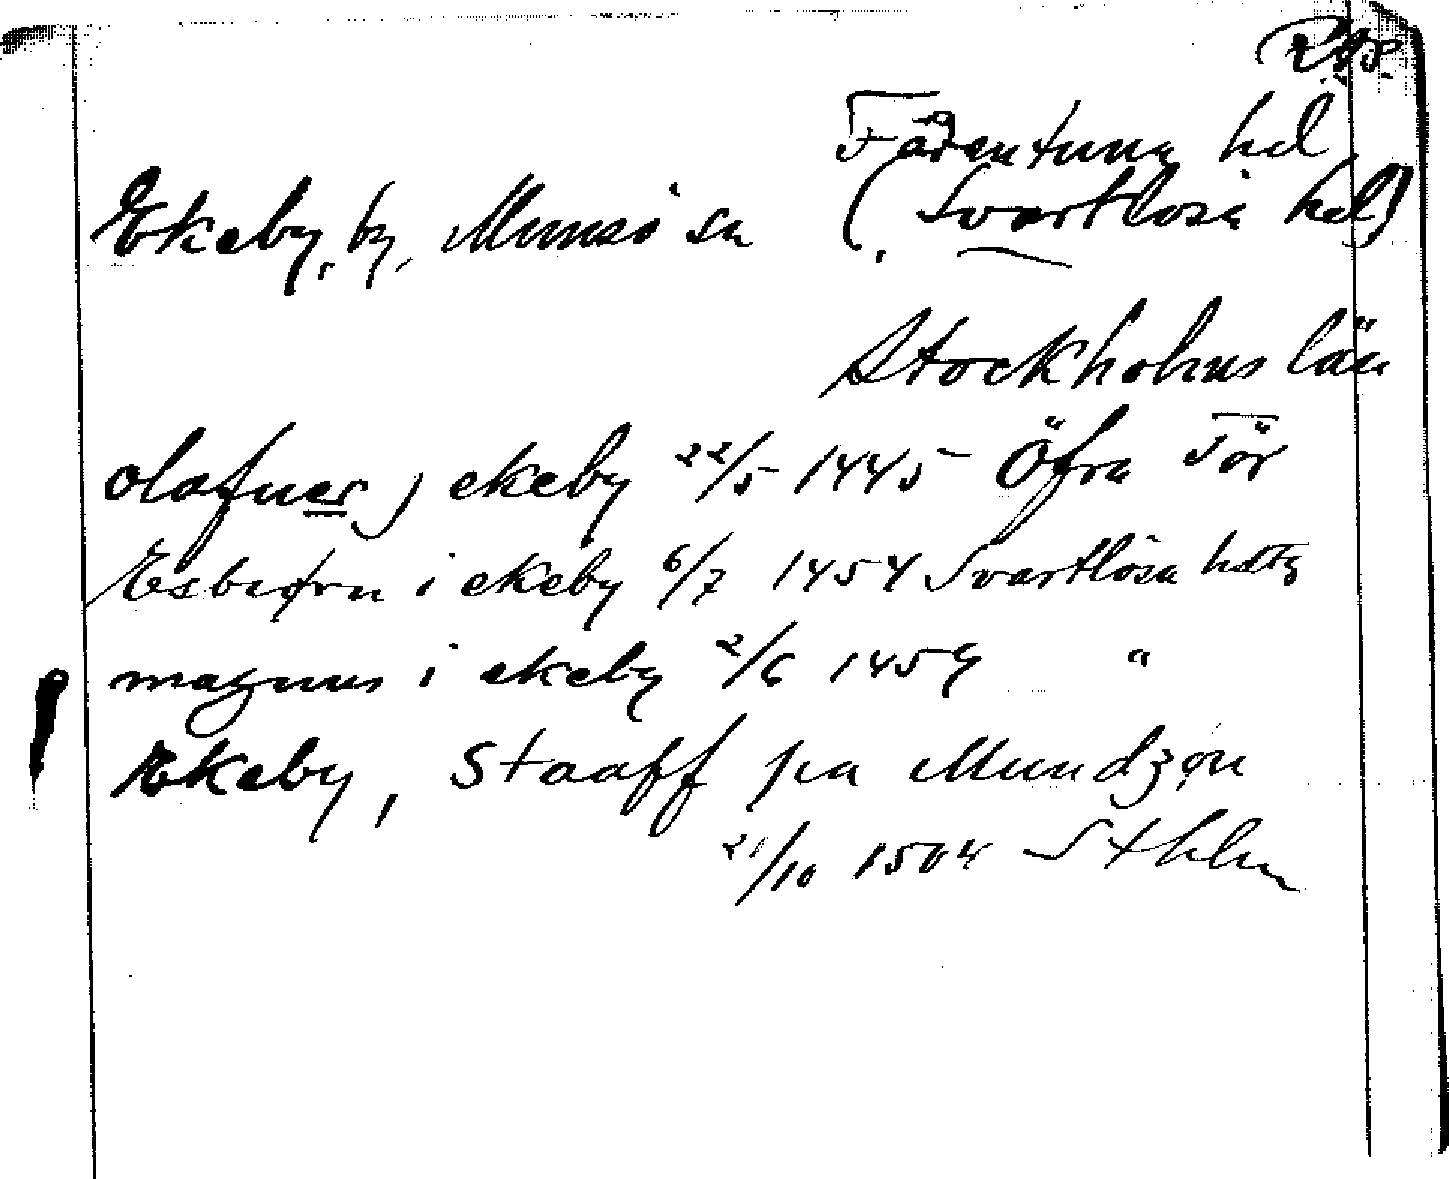 Färentuna hd
Ekeby, by, Munsö sn (Svartlösa hd)
Stockholms län
olafuer j ekeby 22/5 1445 Öfra Tör
Esbiørn i ekeby 6/7 1454 Svartlösa
magnus i ekeby 2/6 1459 "
Ekeby, Staaff pa Mundzøn
21/10 1504 Sthlm